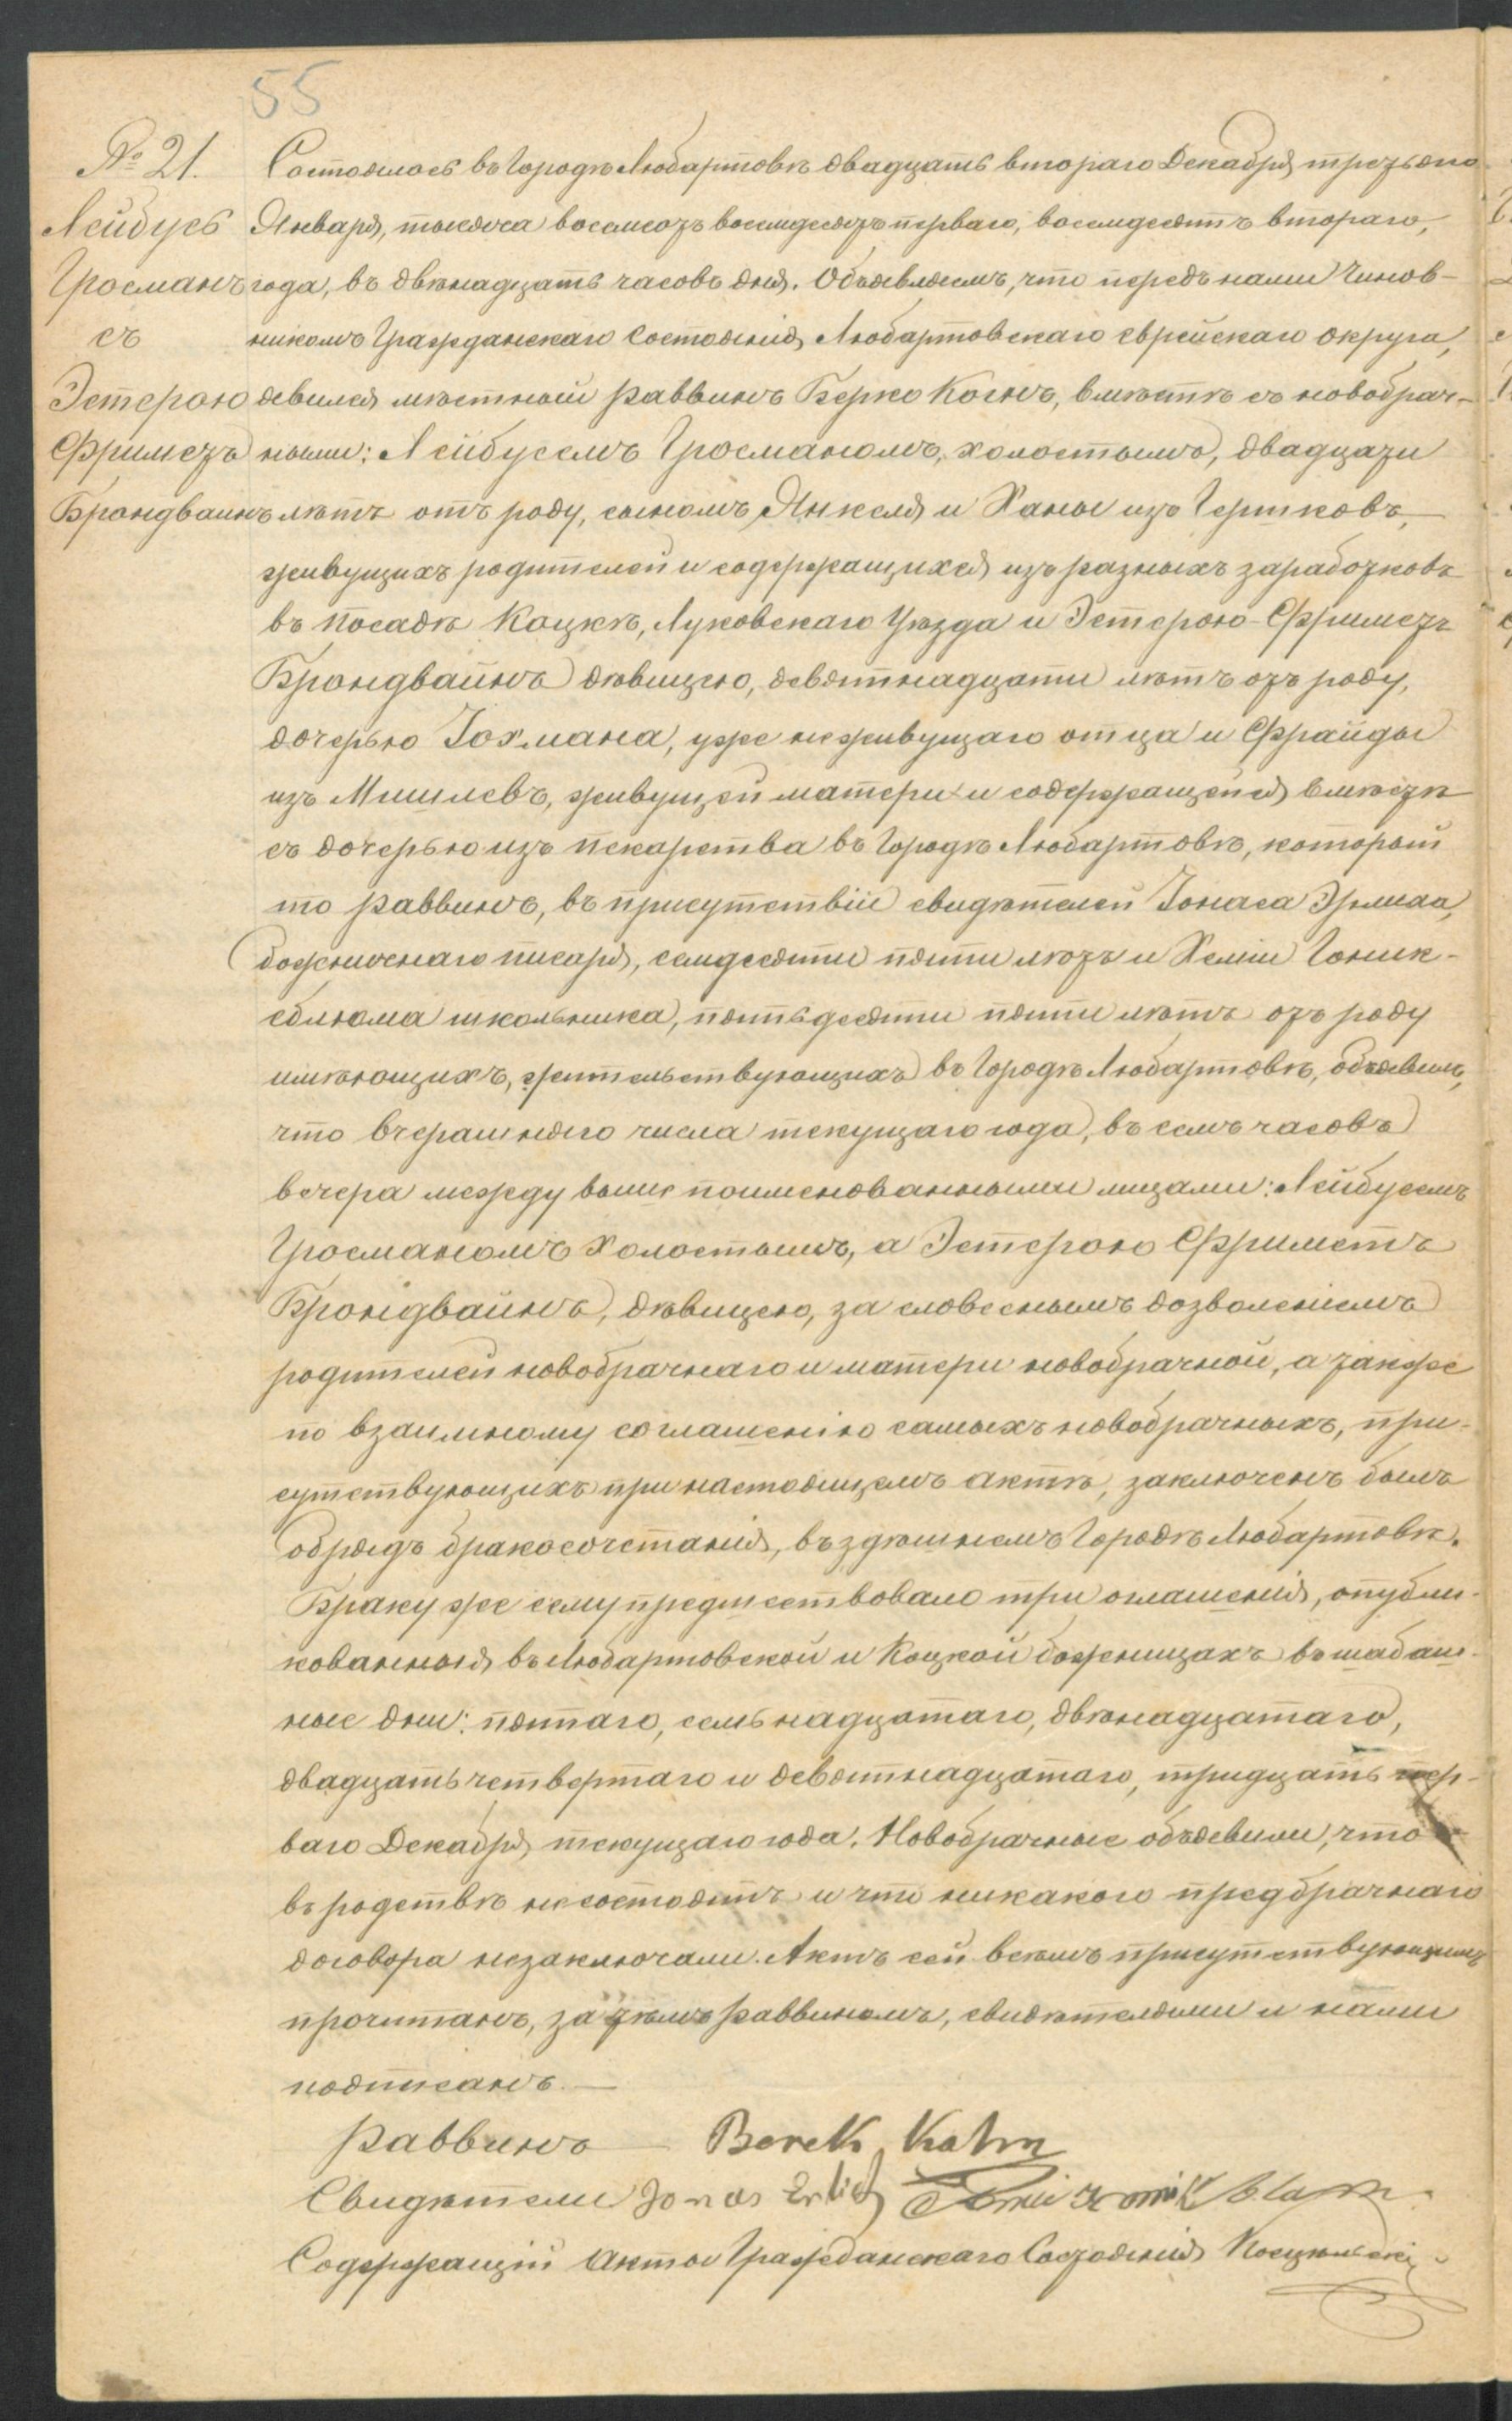 55
№ 21.
Лейбусь
Гросманъ
съ
Эстерою
Фриметъ
Брондвайнъ
Состоялось въ Городѣ Любартовѣ двадцать втораго Декабря, третьяго
Января, тысяча восемсотъ восемдесятъ перваго, восемдесятъ втораго,
года, въ двѣнадцать часовъ дня. Объявляемъ, что передъ нами Чинов-
никомъ Гражданскаго Состоянія, Любартовскаго еврейскаго округа,
явился мѣстный раввинъ Берко Коенъ, вмѣстѣ съ новобрач-
ными: Лейбусемъ Гросманомъ, холостымъ, двадцати
лѣтъ отъ роду, сыномъ Янкеля и Ханы изъ Гершковъ,
живущихъ родителей и содержащихся изъ разныхъ заработковъ
въ посадѣ Коцкѣ, Луковскаго Уѣзда и Эстерою-Фриметъ
Брондвайнъ дѣвицею, девятнадцати лѣтъ отъ роду,
дочерью Іохмана, уже неживущаго отца и Фрайды
изъ Мишлевъ, живущей матери и содержащейся вмѣстѣ
съ дочерью изъ пекарства въ Городѣ Любартовѣ, который
то раввинъ, въ присутствіи свидѣтелей Іонаса Эрлиха,
божничнаго писаря, семдесяти пяти лѣтъ и Хеміи Гоник-
блюма школьника, пятьдесяти пяти лѣтъ отъ роду
имѣющихъ, жительствующихъ въ Городѣ Любартовѣ, объявилъ,
что вчерашняго числа текущаго года, въ семъ часовъ
вечера между выше поименованными лицами: Лейбусемъ
Гросманомъ холостымъ, а Эстерою Фриметъ
Брондвайнъ, дѣвицею, за словеснымъ дозволеніемъ
родителей новобрачнаго и матери новобрачной, а также
по взаимному соглашенію самыхъ новобрачныхъ, при-
сутствующихъ при настоящемъ актѣ, заключенъ былъ
обрядъ бракосочетанія, въ здѣшнемъ Городѣ Любартовѣ.
Браку же сему предшествовало три оглашенія, опубли-
кованныя въ Любартовской и Коцкой божницахъ въ шабаш-
ные дни: пятаго, семьнадцатаго, двѣнадцатаго,
двадцать четвертаго и девятнадцатаго, тридцать пер-
ваго Декабря, текущаго года. Новобрачные объявили, что
въ родствѣ несостоятъ и что никакого предбрачнаго
договора незаключали. Актъ сей всѣмъ присутствующимъ
прочитанъ, за тѣмъ раввиномъ, свидѣтелями и нами
подписанъ.—
Раввинъ Berek Kohn
Свидѣтели Jonas Erlich
Содержащій Акты Гражданскаго Состоянія